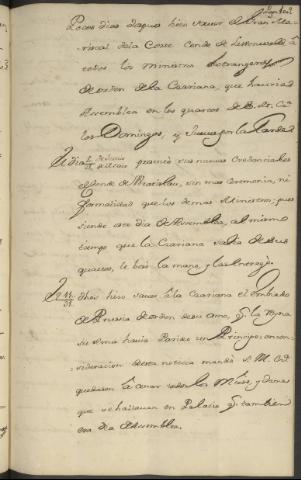 Pocos dias despues hizo saver el Gran Ma-
riscal de la Corte Conde de Levenwolde à
todos los Ministros Extrangeros
de orden de la Czariana, que havria
Assemblea en los quartos de S. M. Cza
los Domingos, y Jueves por la Tarde
El dia presentò sus nuevas Credenciales
el Conde de Wratislau, sin mas ceremonia, ni
formalidad que los demas Ministros; pues
siendo este dia de Assemblea, al mismo
tiempo que la Czariana salia de sus
quartos, le besò la mano, y las entregò.
dho hizo saver à la Czariana el Embiado
de Prusia de orden de su amo, q. la Reyna
su Ama havia Parido un Principe; en con-
sideracion desta noticia mandò S. M. Cza
quedasen à cenar todos los Minos, y Damas
que se hallavan en Palacio q. tambien
era dia Assemblea.